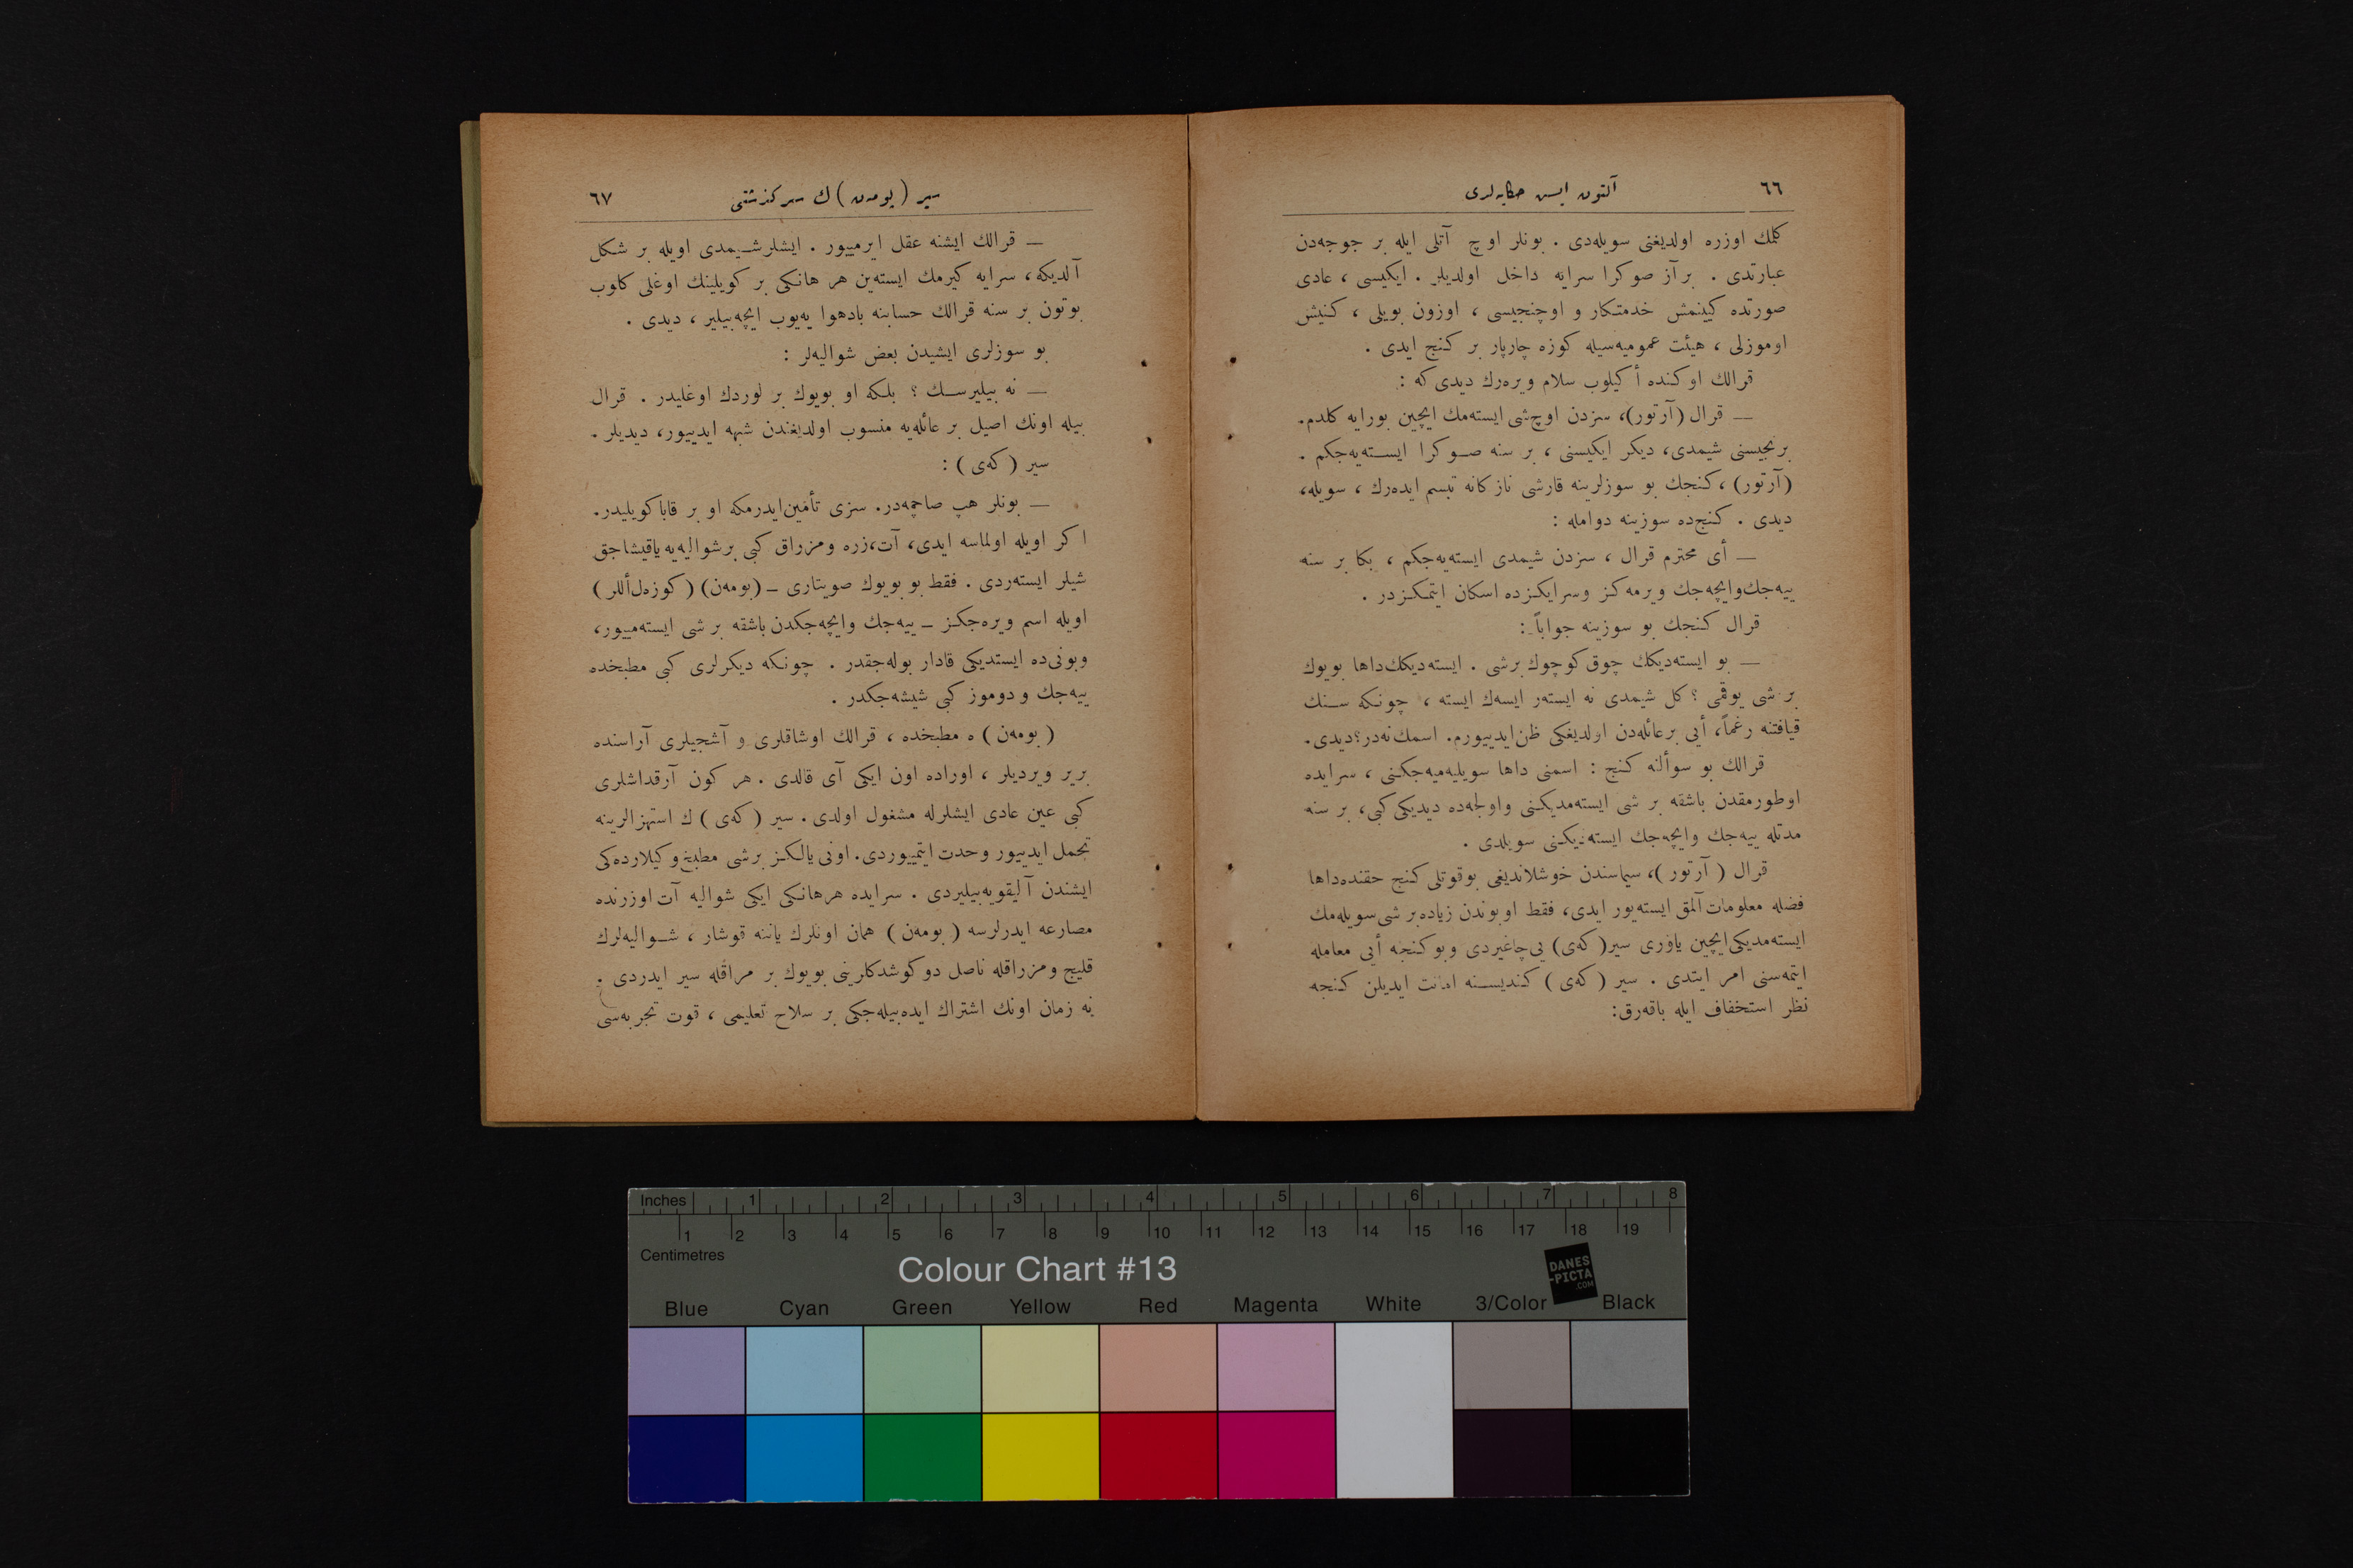 ٦٦
آلتون ایسـ حكایه‌لری
كلمك اوزره اولدیغنی سویله‌دی . بونلر اوچ آتلی ایله بر جوجه‌دن
عبارتدی . بر آز صوكرا سرایه داخل اولدیلر . ایكیسی ، عادی
صورتده كینمش خدمتكار و اوچنجیسی ، اوزون بویلی ، كنیش
اوموزلی ، هیئت عمومیه‌سیله كوزه چارپار بر كنج ایدی .
قرالك اوكنده أكیلوب سلام ویره‌رك دیدی كه :
— قرال (آرتور)، سزدن اوچ شی ایسته‌مك ایچین بورایه كلدم.
برنجیسنی شیمدی، دیكر ایكیسنی ، بر سنه صوكرا ایسته‌یه‌جكم .
(آرتور) ، كنجك بو سوزلرینه قارشی نازكانه تبسم ایده‌رك ، سویله،
دیدی . كنج‌ده سوزینه دوامله :
— أی محترم قرال ، سزدن شیمدی ایسته‌یه‌جكم ، بكا بر سنه
ییه‌جك وایچه‌جك ویرمه‌كز وسرایكزده اسكان ایتمكزدر .
قرال كنجك بو سوزینه جواباً :
— بو ایسته‌دیكك چوق كوچوك برشی . ایسته‌دیكك داها بویوك
بر شی یوقمی ؟ كل شیمدی نه ایستر ایسه‌ك ایسته ، چونكه سنك
قیافتنه رغماً، أیی برعائله‌دن اولدیغكی ظن ایدییورم. اسمك نه‌در؟ دیدی.
قرالك بو سوألنه كنج : اسمنی داها سویلیه‌میه‌جكنی ، سرایده
اوطورمقدن باشقه بر شی ایسته‌مدیكنی واولجه‌ده دیدیكی كبی، بر سنه
مدتله ییه‌جك وایچه‌جك ایسته‌دیكنی سویلدی .
قرال ( آرتور )، سیماسندن خوشلاندیغی بوقوتلی كنج حقنده داها
فضله معلومات آلمق ایسته‌یور ایدی، فقط اوبوندن زیاده بر شی سویله‌مك
ایسته‌مدیكی ایچین یاوری سیر( كه‌ی) یی چاغیردی وبو كنجه أیی معامله
ایتمه‌سنی امر ایتدی . سیر (كه‌ی) كندیسنه امانت ایدیلن كنجه
نظر استخفاف ایله باقه‌رق:
سیر (بومه‌ن) ك سركذشتی
٦٧
— قرالك ایشنه عقل ایرمییور . ایشلر شیمدی اویله بر شكل
آلدیكه، سرایه كیرمك ایسته‌ین هر هانكی بر كویلینك اوغلی كلوب
بوتون بر سنه قرالك حسابنه بادهوا یه‌یوب ایچه‌بیلیر ، دیدی .
بو سوزلری ایشیدن بعض شوالیه‌لر :
— نه بیلیرسك ؟ بلكه او بویوك بر لوردك اوغلیدر . قرال
بیله اونك اصیل بر عائله‌یه منسوب اولدیغندن شبهه ایدییور، دیدیلر.
سیر (كه‌ی) :
— بونلر هپ صاچمه‌در. سزی تأمین ایدرمكه او بر قابا كویلیدر.
اكر اویله اولماسه ایدی، آت،زره ومزراق كبی بر شوالیه‌یه یاقیشاجق
شیلر ایسته‌ردی . فقط بو بویوك صویتاری – (بومه‌ن) (كوزه‌ل أللر)
اویله اسم ویره‌جكز – ییه‌جك وایچه‌جكدن باشقه بر شی ایسته‌مییور،
وبونی‌ده ایستدیكی قادار بوله‌جقدر . چونكه دیكرلری كبی مطبخده
ییه‌جك و دوموز كبی شیشه‌جكدر .
(بومه‌ن) ه مطبخده ، قرالك اوشاقلری و آشجیلری آراسنده
بریر ویردیلر ، اوراده اون ایكی آی قالدی . هر كون آرقداشلری
كبی عین عادی ایشلرله مشغول اولدی. سیر (كه‌ی) ك استهزالرینه
تحمل ایدییور وحدت ایتمییوردی. اونی یالكز برشی مطبخ وكیلارده‌كی
ایشندن آلیقویه‌بیلیردی . سرایده هرهانكی ایكی شوالیه آت اوزرنده
مصارعه ایدرلرسه (بومه‌ن) همان اونلرك یاننه قوشار ، شوالیه‌لرك
قلیج ومزراقله ناصل دوكوشدكلرینی بویوك بر مراقله سیر ایدردی .
نه زمان اونك اشتراك ایده‌بیله‌جكی بر سلاح تعلیمی ، قوت تجربه‌سی
Inches 1 2 3 4 5 6 7 8
1 2 3 4 5 6 7 8 9 10 11 12 13 14 15 16 17 18 19
Centimetres
Colour Chart #13
DANES
-PICTA
.COM
Blue Cyan Green Yellow Red Magenta White 3/Color Black